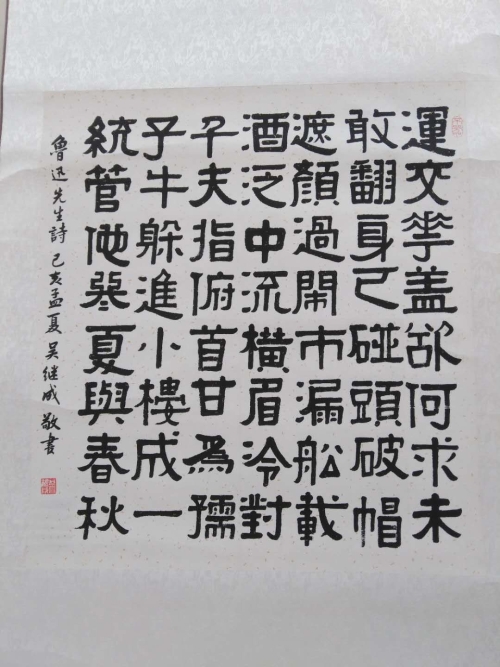 運交華盖欲何求未
敢翻身已碰頭破帽
遮顏過鬧市漏船載
酒泛中流橫眉冷對
千夫指俯首甘為孺
子牛躲進小樓成一
統管他冬夏與春秋
魯迅先生詩 己亥孟夏 吴继成 敬書